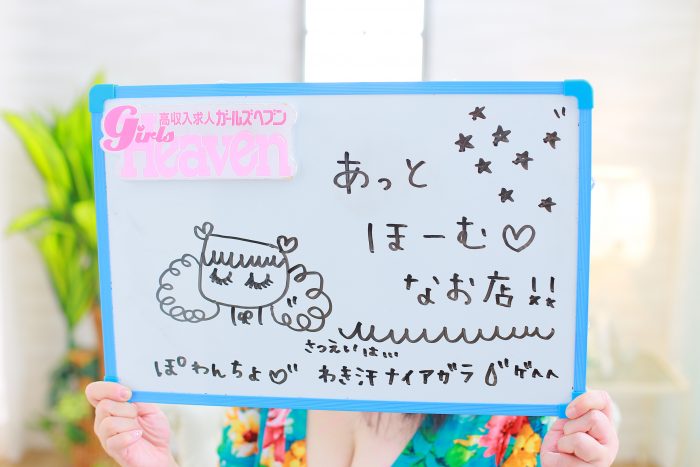 高収入求人ガールズヘブン
Girls
Heaven
あっと
ほーむ♡
なお店!!
さつえいは…
ぽわんちょ♡
わき汗ナイアガラ ゲヘヘ